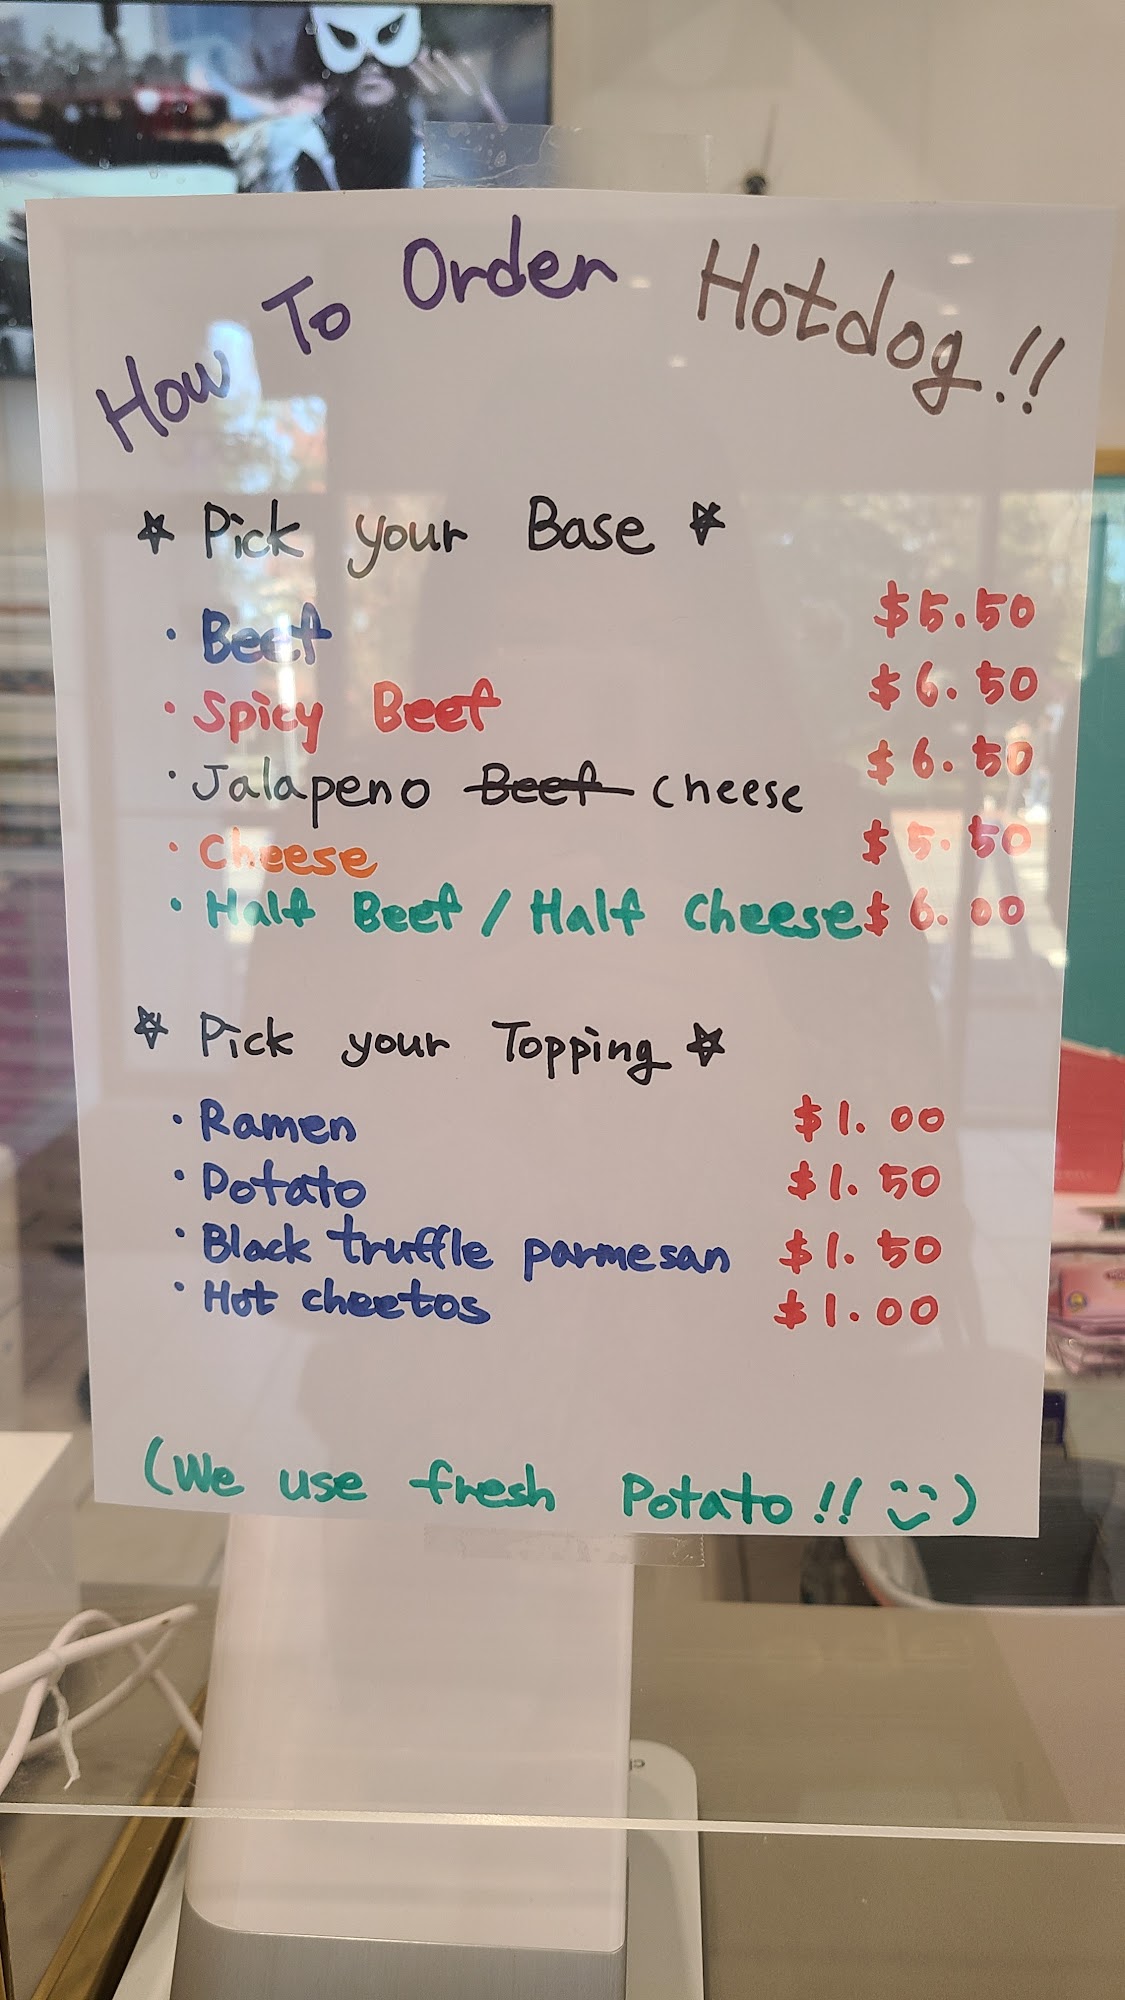 How To Order Hotdog!!
☆ Pick your Base ☆
· Beef $5.50
· Spicy Beef $6.50
· Jalapeno ~~Beef~~ cheese $6.50
· Cheese $5.50
· Half Beef / Half Cheese $6.00
☆ Pick your Topping ☆
· Ramen $1.00
· Potato $1.50
· Black truffle parmesan $1.50
· Hot cheetos $1.00
(We use fresh Potato!! ツ)